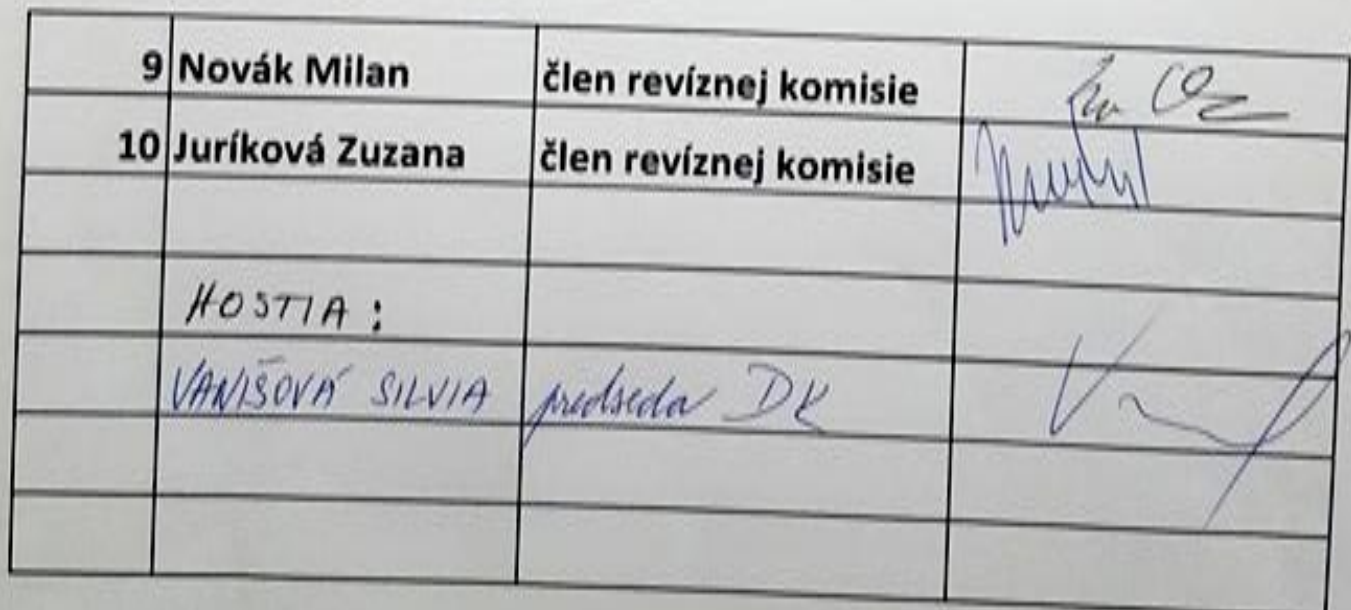 9 Novák Milan člen revíznej komisie
10 Juríková Zuzana člen revíznej komisie
HOSTIA :
VANIŠOVÁ SILVIA predseda DK